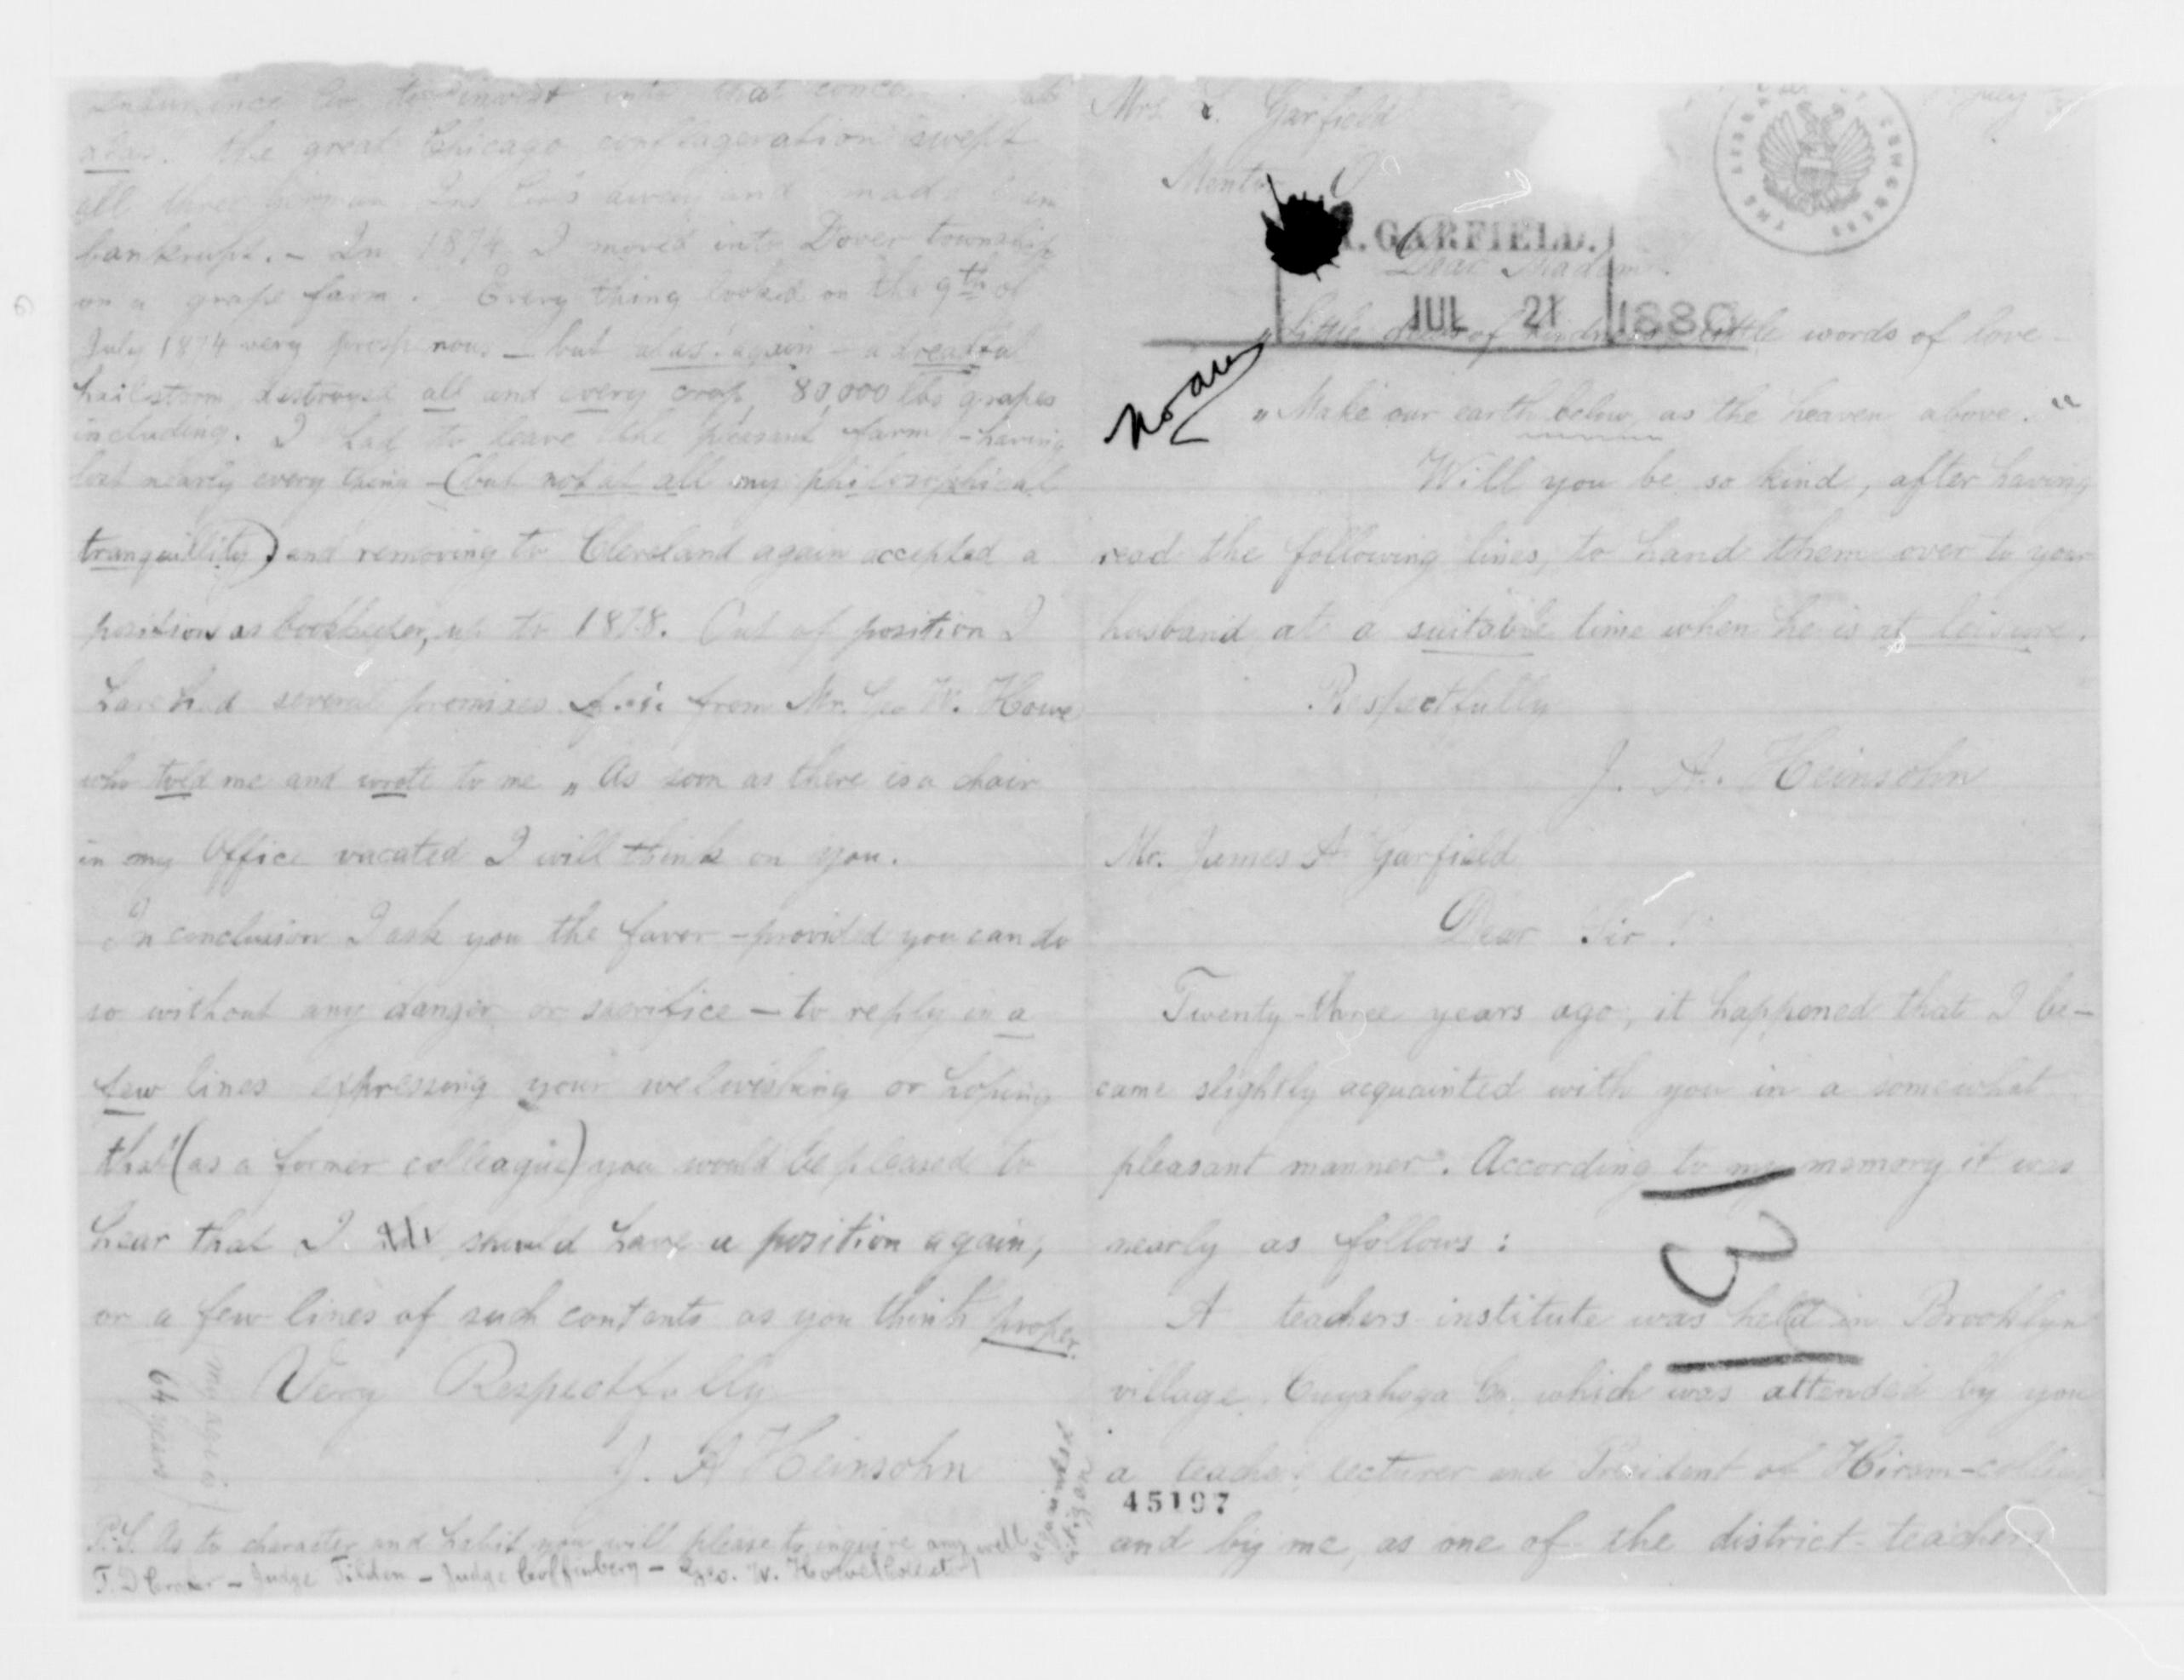 Insurance Co. to invest into that
alas. the great Chicago conflageration swept
all three away and made
bankrupt. – In 1874 I moved into Dover township
on a grape farm. Every thing looked on the 9th of
July 1874 very – but alas! again – a dreadful
hailstorm destroyed all and every crop, 80,000 lbs grapes
including. I had to leave the pleasant farm – having
lost nearly every thing – (but not at all my philosophical
tranquillity) and removing to Cleveland again accepted a
position as bookkeeper, up to 1878. Out of position I
have had several promises from Mr. Geo W. Howe
who told me and wrote to me „ As soon as there is a chair
in my Office vacated I will think on you.
In conclusion I ask you the favor – provided you can do
so without any danger or sacrifice – to reply in a
few lines expressing your welwishing or hoping
that (as a former colleague) you would be pleased to
hear that I should have a position again,
or a few lines of such contents as you think proper.
Very Respectfully
J. A Heinsohn
my age is
64 years
P.S. As to character and habit you will please to inquire any well
acquainted
T. D – Judge Tilden – Judge Coffinberry – Geo. W. Howe
Mrs L. Garfield
July
Mentor O
THE LIBRARY OF CONGRESS
A. GARFIELD.
Dear Madam.
JUL 21 1880
„ Little deeds of kindness, little words of love –
No ans
„ Make our earth below, as the heaven above. “
Will you be so kind, after having
read the following lines, to hand them over to your
husband at a suitable time when he is at leisure.
Respectfully
J. A. Heinsohn
Mr. James A Garfield
Dear Sir!
Twenty-three years ago, it happened that I be–
came slightly acquainted with you in a somewhat
pleasant manner. According to my memory it was
nearly as follows:
A teachers institute was held in Brooklyn
village, Cuyahoga Co. which was attended by you
a teacher, lecturer and President of Hiram-college
45197
and by me, as one of the district-teachers